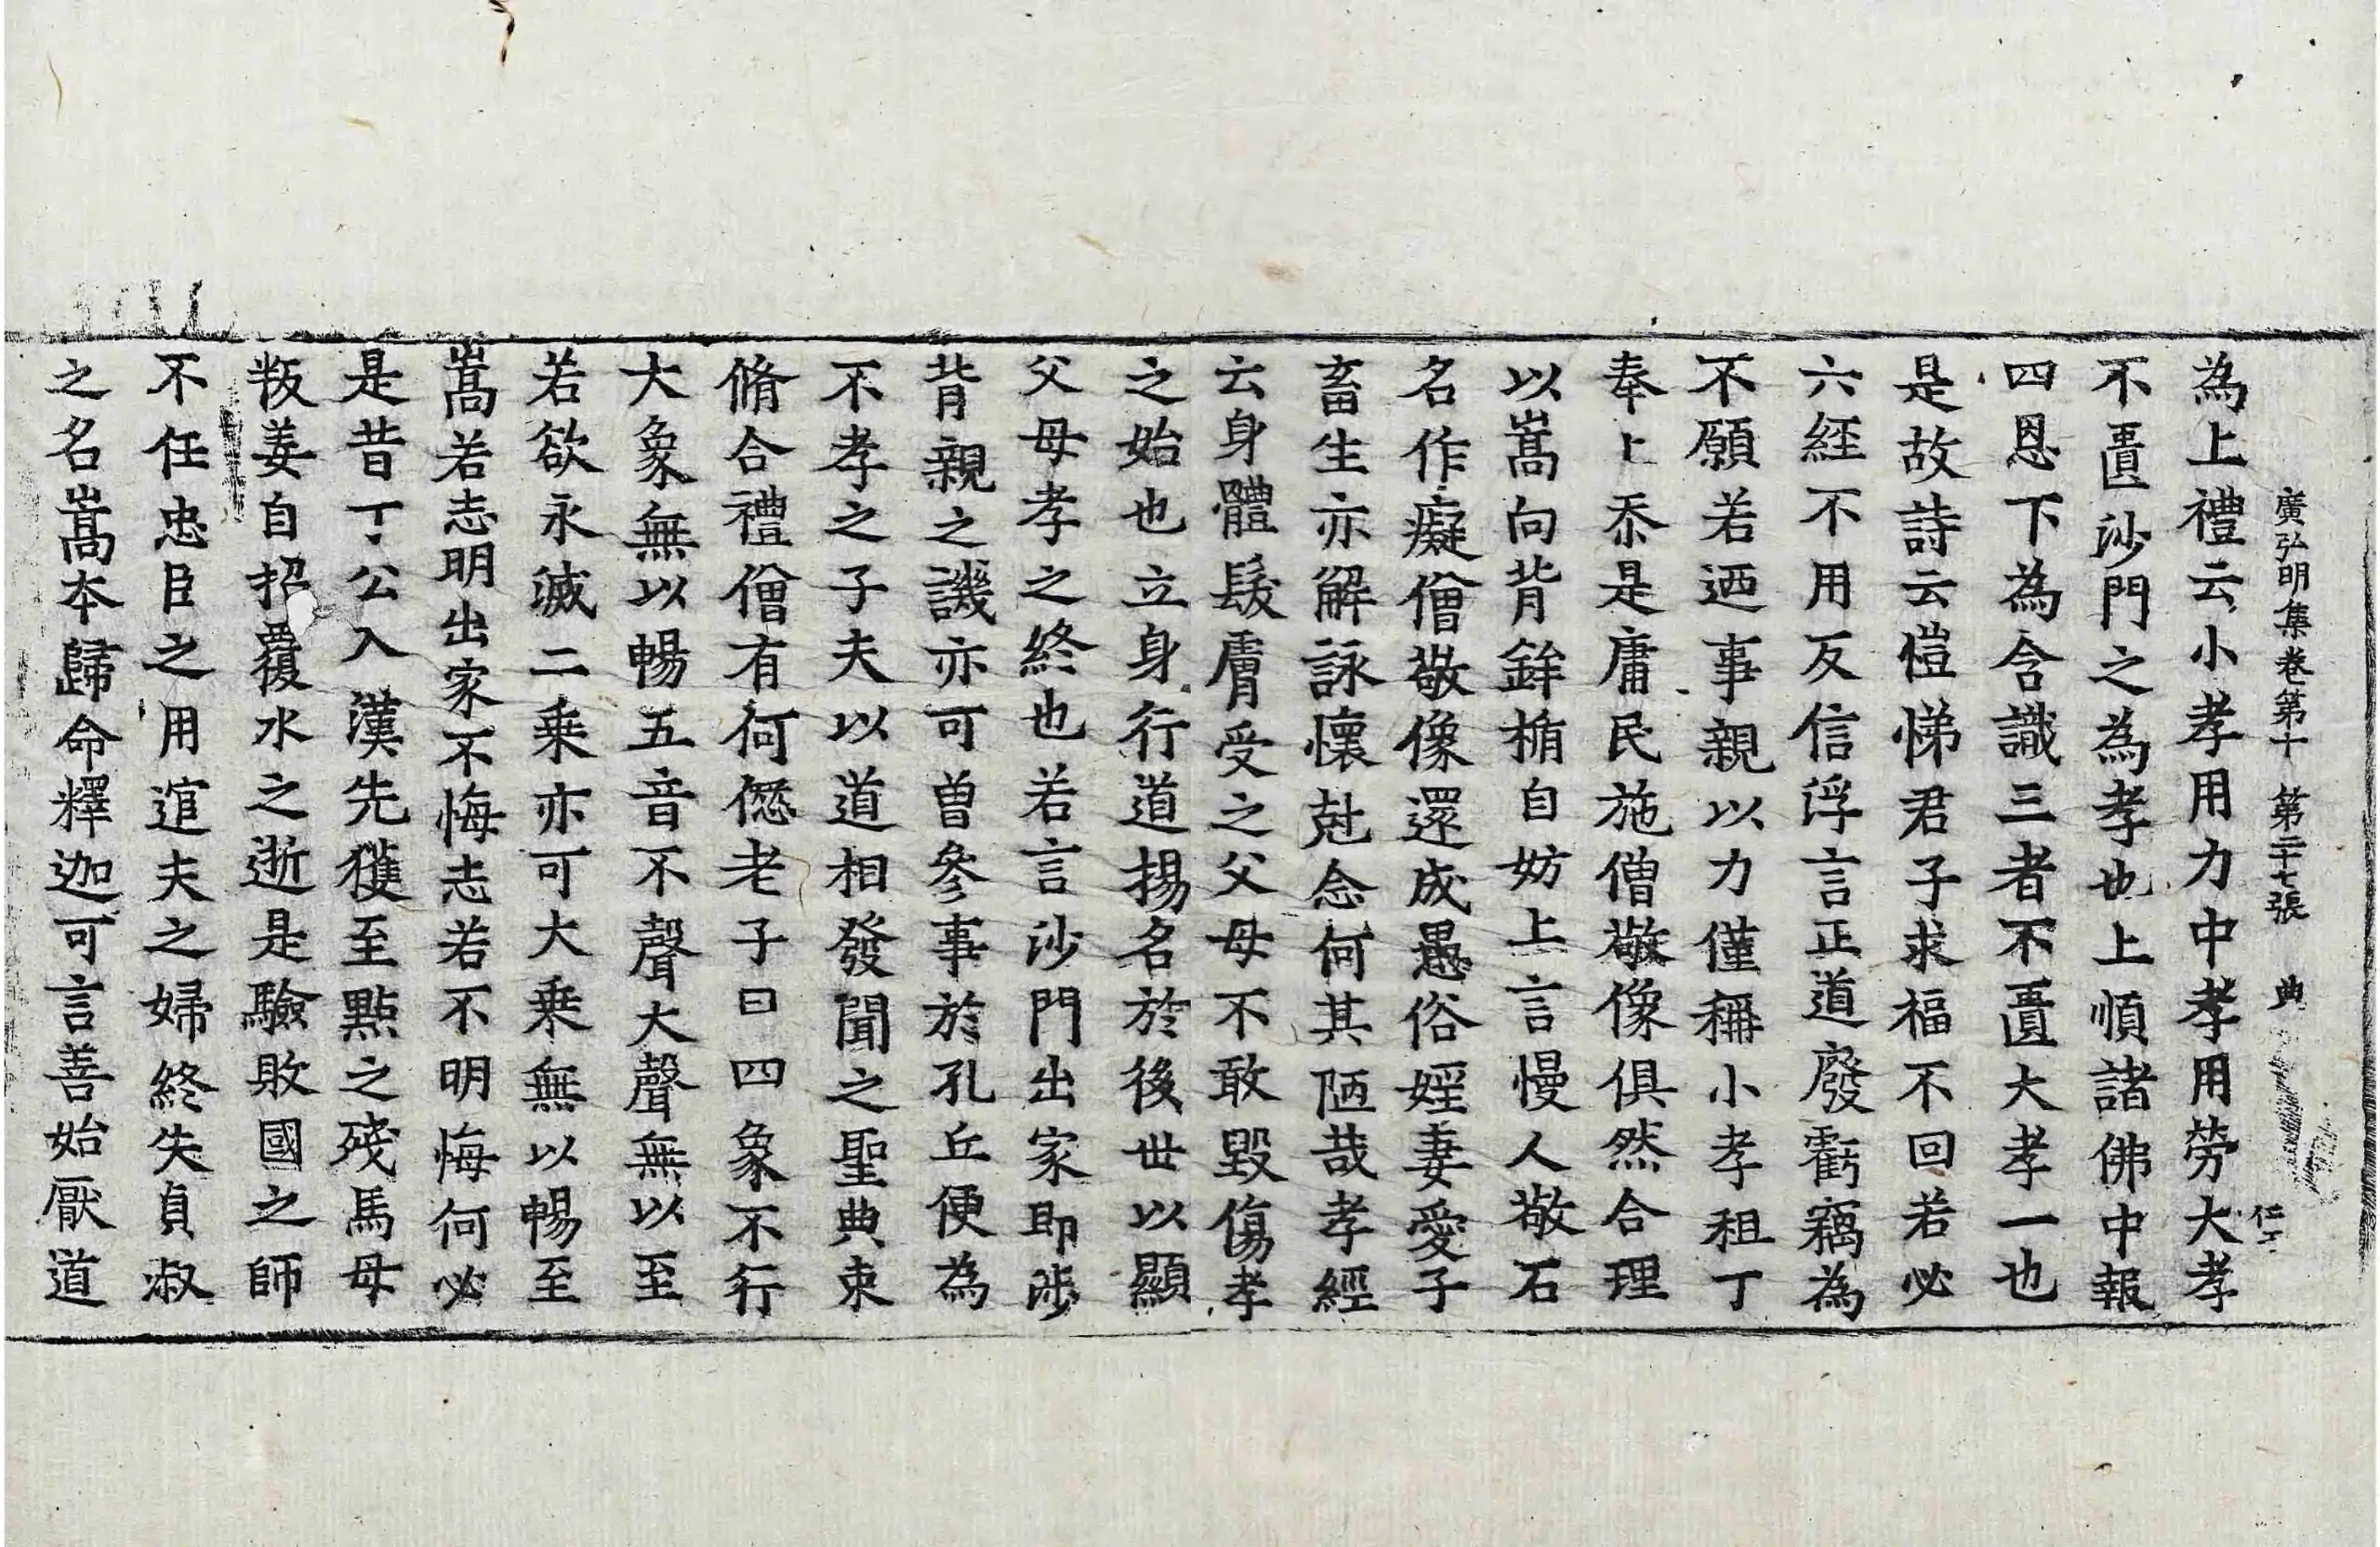 廣弘明集卷第十 第二十七張 典
仁工
為上禮云小孝用力中孝用勞大孝
不匱沙門之為孝也上順諸佛中報
四恩下為含識三者不匱大孝一也
是故詩云愷悌君子求福不回若必
六經不用反信浮言正道廢虧竊為
不願若迺事親以力僅稱小孝租丁
奉上忝是庸民施僧敬像俱然合理
以嵩向背鉾楯自妨上言慢人敬石
名作癡僧敬像還成愚俗婬妻愛子
畜生亦解詠懷尅念何其陋哉孝經
云身體髮膚受之父母不敢毀傷孝
之始也立身行道揚名於後世以顯
父母孝之終也若言沙門出家即涉
背親之譏亦可曾參事於孔丘便為
不孝之子夫以道相發聞之聖典束
脩合禮僧有何𠍴老子曰四象不行
大象無以暢五音不聲大聲無以至
若欲永滅二乘亦可大乘無以暢至
嵩若志明出家不悔志若不明悔何必
是昔丁公入漢先獲至點之殘馬母
叛姜自招覆水之逝是驗敗國之師
不任忠臣之用逭夫之婦終失貞叔
之名嵩本歸命釋迦可言善始厭道